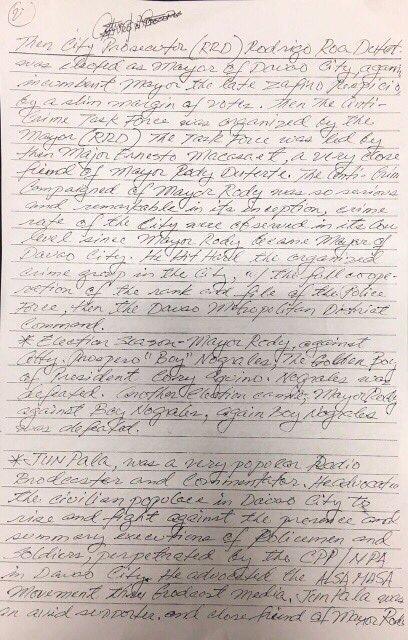 Then City Prosecutor (RRD) Rodrigo Roa Dutert.
was elected as Mayor of Davao City, again
incumbent Mayor the late Zafiro Respicio
by a slim margin of votes. Then the Anti-
Crime Task Force was organized by the
Mayor (RRD) The Task Force was led by
then Major Ernesto Macasaet, a very close
friend of Mayor Rody Duterte. The Anti-Crim
Campaigned of Mayor Rody was so serious
and remarkable in its inception, crime
rate of the City were observed in its low
level since Mayor Rody became Mayor of
Davao City. He hit Hard the organized
crime group in the City, w/ the full coope-
ration of the rank and file of the Police
Force, then the Davao Metropolitan District
Command.
* Election Season - Mayor Rody, against
Cong. Prospero "Boy" Nograles, The Golden Boy
of President Corry Aquino. Nograles was
defeated. Another Election came, Mayor Rody
against Boy Nograles, again Boy Nograles
was defeated.
* JUN Pala, was a very popular Radio
Brodcaster and Commentator. He advocate
the civilian populace in Davao City to
rise and fight against the presence and
summary executions of Policemen and
Soldiers, perpetrated by the CPP/NPA
in Davao City. He advocated the ALSA MASA
Movement thru Brodcast Media. Jun Pala was
an avid supporter, and close friend of Mayor Rody